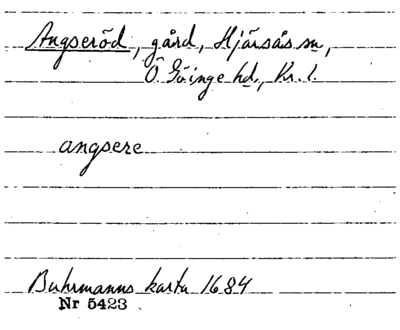 Angseröd, gård, Hjärsås sn,
Ö Göinge hd, Kr. l.
angsere
Buhrmanns karta 1684
Nr 5423